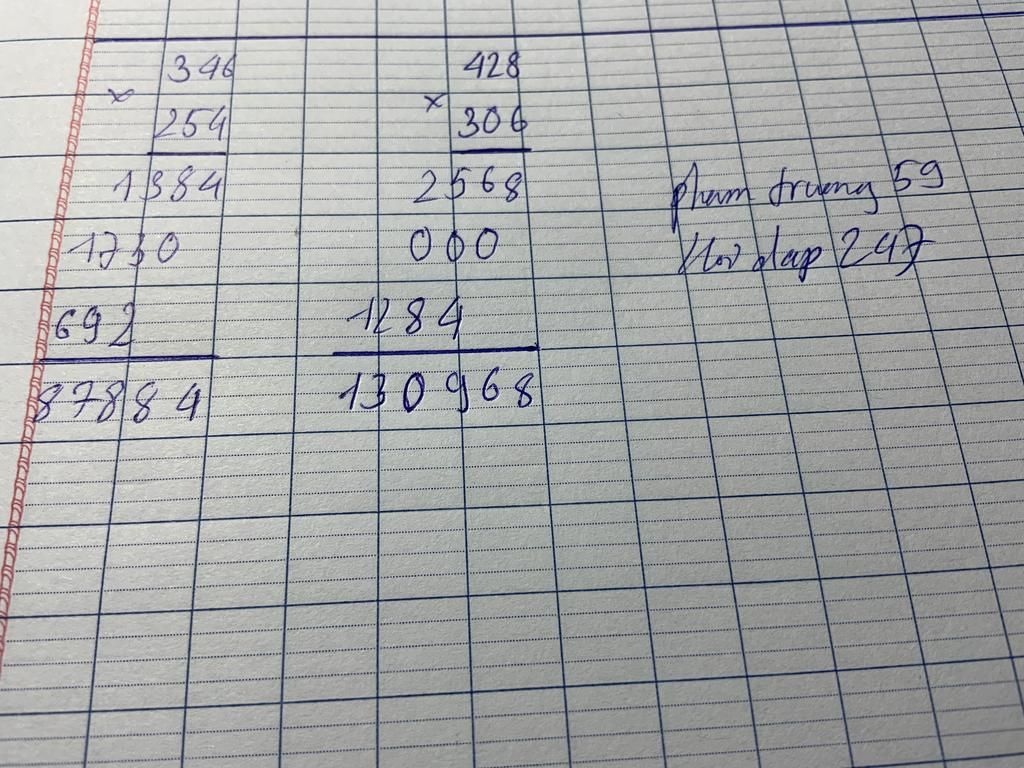 346
×
254
1384
1730
692
87884
428
×
306
2568
000
1284
130968
pham truong 59
Hoi dap 247